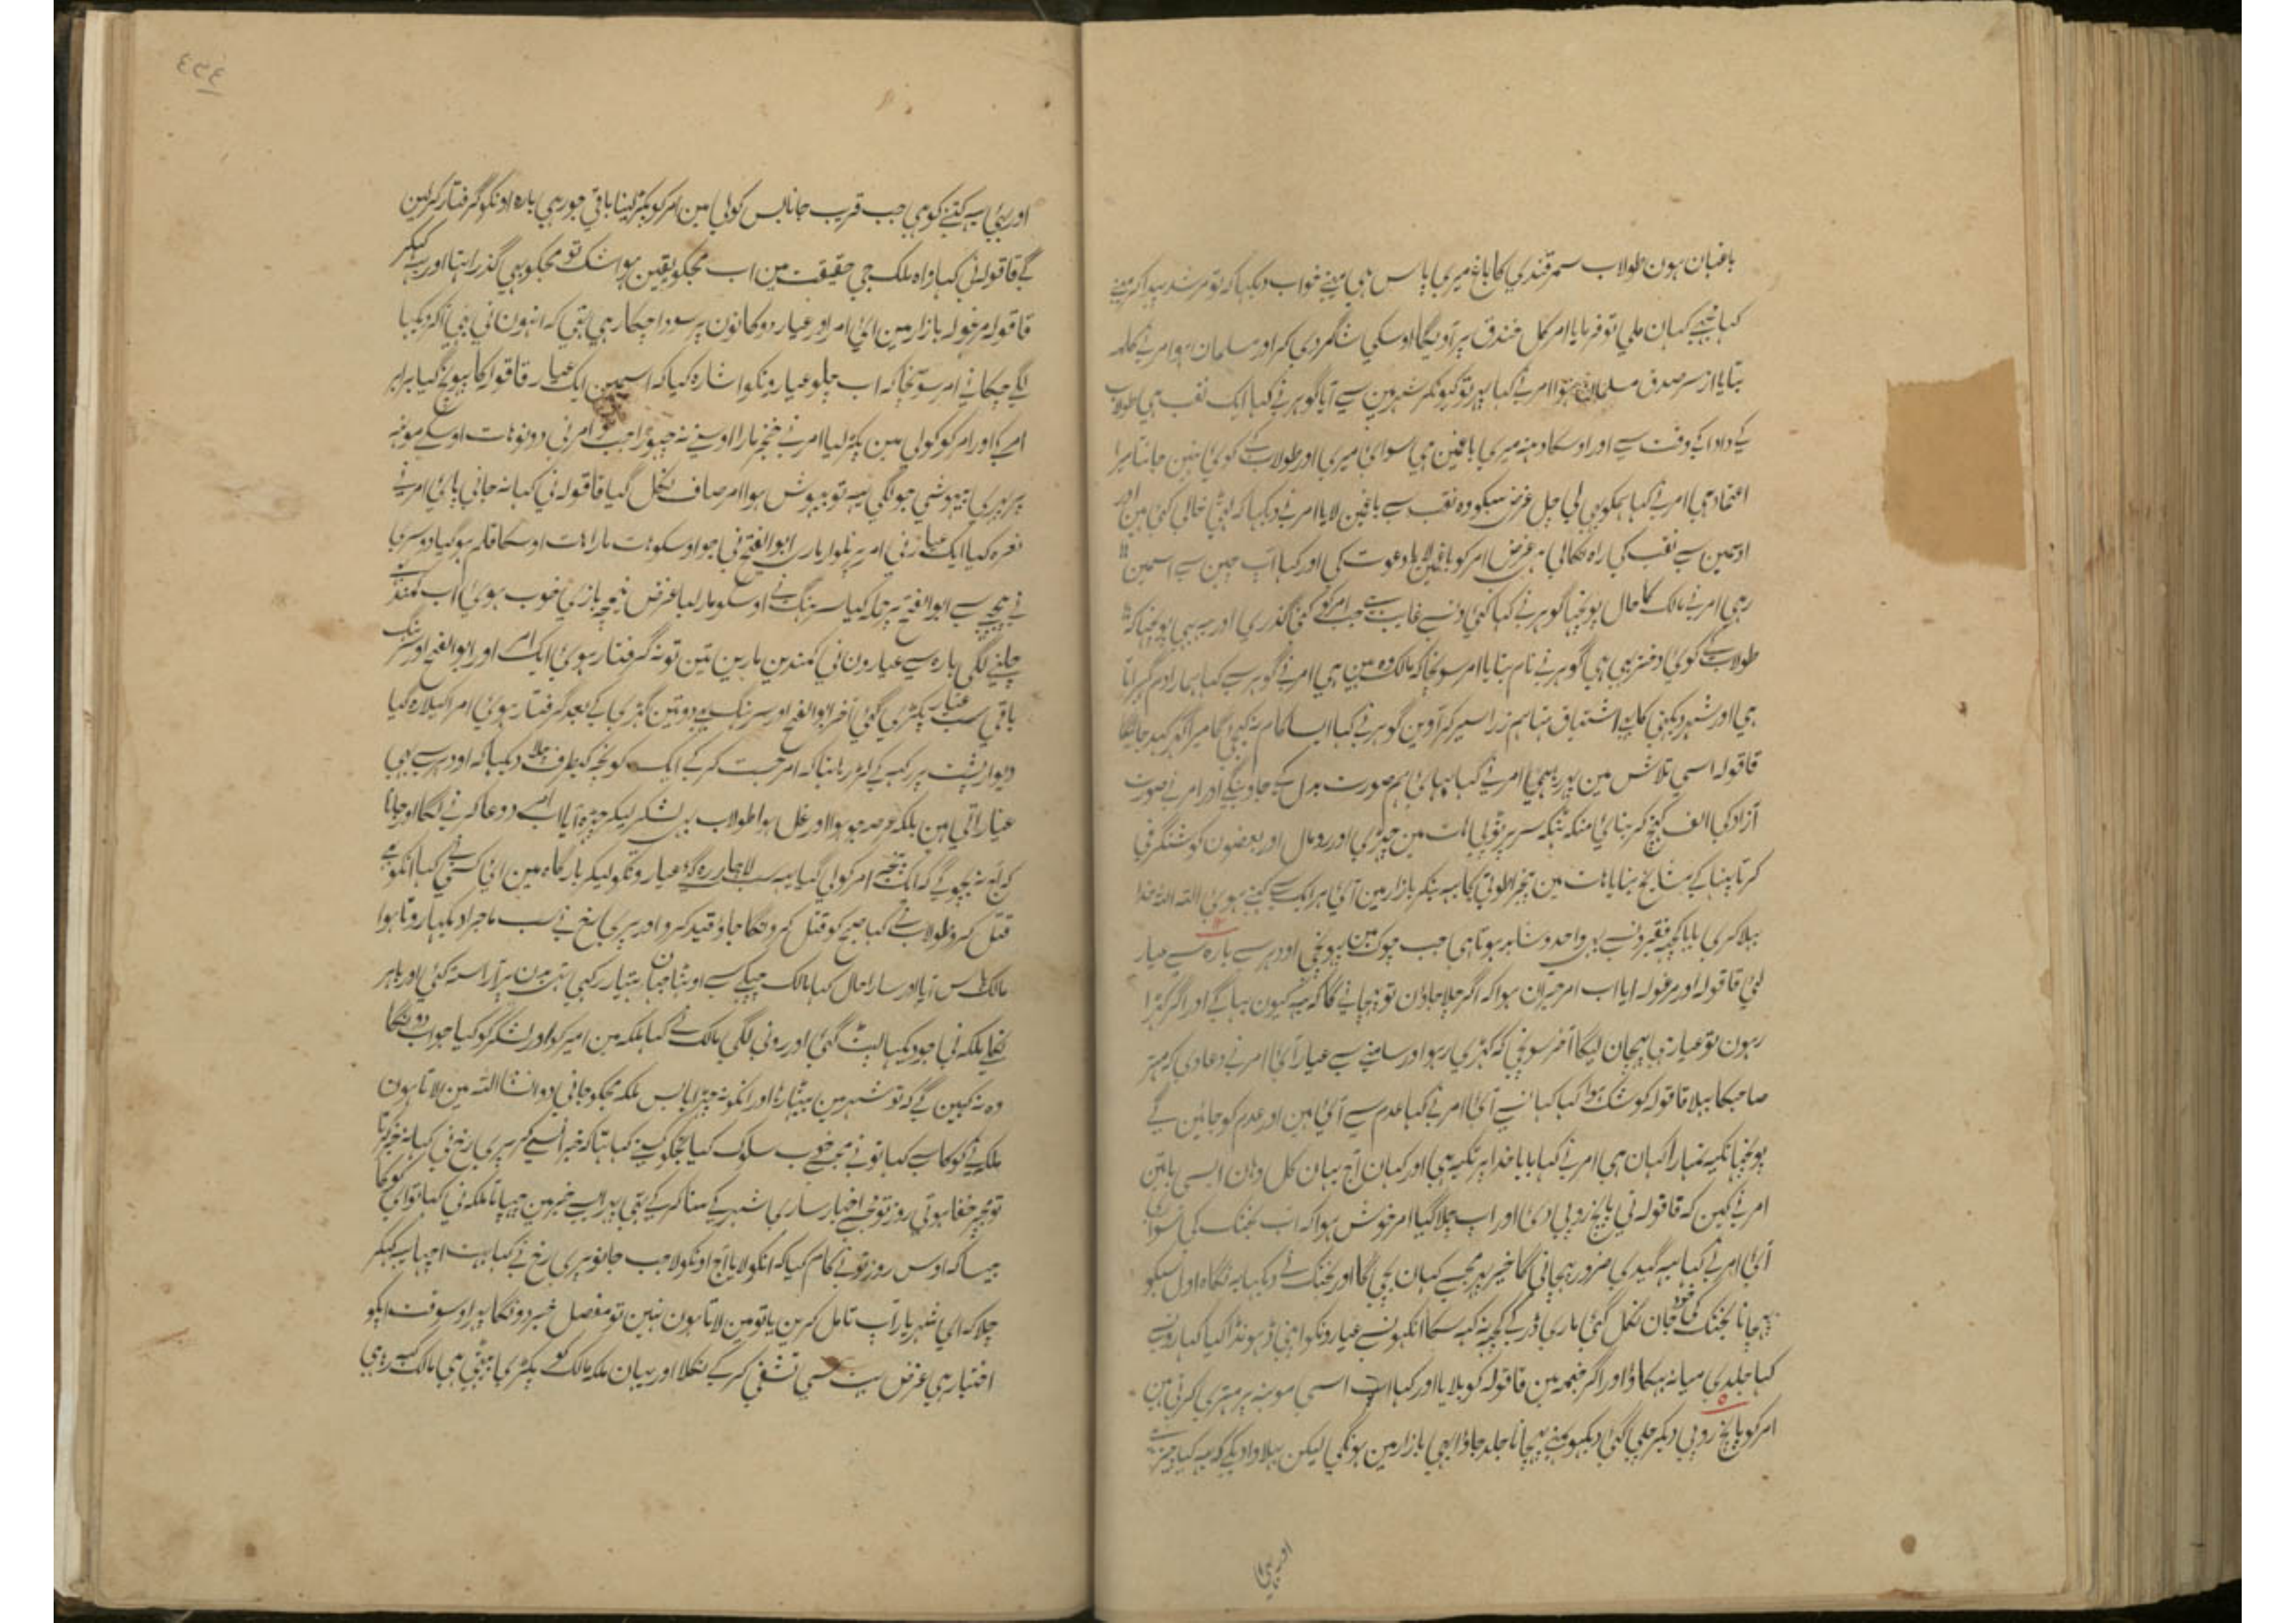 باغبان ہون طولاب سمرقندی کا باغ میری پاس ہی مینے خواب دیکہا کہ تو مرشد پیدا کر مینے
کہا مجہے کہان ملی تو فرمایا امر کل خندق پر آویگا اوسکی شاگردی کر اور مسلمان ہو امر نے کلمہ
بتایا از سر صدق مسلمان ہوا امر نے کہا پہر تو کیونکر شہر مین سے آیا گوہر نے کہا ایک نقب ہی طولاب
کے دادا کے وقت سے اور اوسکا دہنہ میری باغمین ہی سوای میری اور طولاب کے کوئی نہین جانتا میرا
اعتماد ہی امر نے کہا ہمکو بہی لی چل غرض سبکو وہ نقب سے باغمین لایا امر نے دیکہا کہ خالی کئی ہین اور
اوسمین سے نقب کی راہ نکالی ہی غرض امر کو باغمین لایا دعوت کی اور کہا آپ چین سے اسمین
رہی امر نے مالک کا حال پوچہا گوہر نے کہا کئی دنسے غایب ہے جب امر کو کئی گذری اور یہ بہی پوچہا کہ
طولاب کے کوئی دختر بہی ہی گوہر نے نام بتایا امر سونچا کہ مالک وہ مین ہی امر نے گوہر سے کہا ہمارا دم گہبراتا
ہی اور شہر دیکہنی کا اشتیاق ہتا ہم ذرا سیر کر آوین گوہر نے کہا ایسا کام نہ کیجیگا میرا گہر کہد جائیگا
قاقولہ اسی تلاش مین پہر رہی امر نے کہا بہائی ہم صورت بدل کے جاوینگے اور امر نے صورت
آزاد کی الف کہنچ کر بنائی منکہ تنکہ سر پر ٹوپی ہات مین چہڑی اور رومال اور بعضون کو شنگرفی
کرتا پہنا کے بنایا ہات مین پنجرا طوطی کا یہ بنکر بازار مین آئی ہر ایک سے کہتے ہوئی اللہ اللہ خدا
بہلا کری بابا کچہ فقیر دنسے بہی واحد و شاہد ہوتا ہی جب چوک مین پہونچی اودہر سے بارہ سے عیار
لئی قاقولہ اور مرغولہ آیا اب امر حیران ہوا کہ اگر چلا جاون تو پہچانے گا کہ یہ کیون بہاگے اور اگر کہڑا
رہون تو عیار ہی پہچان لیگا آخر سونچی کہ کہڑی رہو اور سامنے سے عیار آئی امر نے دعا دی کہ مہتر
صاحبکا بہلا قاقولہ کو شک ہوا کہا کہانسے آئی امر نے کہا عدم سے آئی ہین اور عدم کو جائین گے
پوچہا تکیہ تمہارا کہان ہی امر نے کہا بابا خدا پر تکیہ ہی اور کہان آج یہان کل وہان ایسی باتین
امر نے کین کہ قاقولہ نی پانچ روپی دئی اور آپ چلا گیا امر خوش ہوا کہ اب بختک کی سواری
آئی امر نے کہا یہ گیدی ضرور پہچانی گا خیر پہر مجہسے کہان بچی گا اور بختک نے دیکہا یہ نگاہ اول سبکو
پہچانا بختک کی خود جان نکل گئی ماری ڈر کے کچہ نہ کہہ سکا آنکہونسے عیارونکو اپنی ڈہونڈا کیا کہارونسے
کہا جلدی میانہ بہگاؤ اور اگر خیمہ مین قاقولہ کو بلایا اور کہا اب اسی مونہہ پر مہتری کرتی ہین
امر کو پانچ روپی دیکر چلی گئی دیکہو مینے پہچانا جلد جاؤ ابہی بازار مین ہونگی لیکن بہلاوا دیکے کہ یہ کیا چیز ہے
اور یہی
٤٣٤
اور یہی یہ کہتے کو ہی جب قریب جانا بس کولی مین امر کو پکڑ لینا باقی جو رہی بارہ اونکو گرفتار کر لین
گے قاقولہ نی کہا واہ ملک جی حقیقت مین اب مجکو یقین ہوا شک تو مجکو بہی گذرا تہا اور یہ کہکر
قاقولہ مرغولہ بازار مین آئی امر اور عیار دوکانون پر سودا چکا رہی تہی کہ انہون نی بہی آکر دیکہا
لگے چکانے امر سونچا کہ اب چلو عیارونکو اشارہ کیا کہ اسمین ایک عیار قاقولہ کا پہونچ گیا برابر
امر کے اور امر کو کولی مین پکڑ لیا امر نے خنجر مارا اوسنے نہ چہوڑا جب امر نی دونو ہات اوسکے مونہہ
پر پہیری بیہوشی جو لگی یہ تو بیہوش ہوا امر صاف نکل گیا قاقولہ نی کہا نہ جانی پائی امر نے
نعرہ کیا ایک عیار نی امر پر تلوار ماری ابو الفتح نی جو اوسکو ہات مارا ہات اوسکا قلم ہو گیا دوسری
نے پیچہے سے ابو الفتح پر حملہ کیا سرہنگ نے اوسکو مار لیا غرض نیمچہ بازی خوب ہوئی اب کمند
چلنے لگی بارہ سے عیارون نی کمندین مارین تین تو نہ گرفتار ہوئی ایک امر اور ابو الفتح اور سرہنگ
باقی سب عیار پکڑی گئی آخر ابو الفتح اور سرہنگ بہی دو تین گہڑی کے بعد گرفتار ہوئی امر اکیلا رہ گیا
دیوار پشت پر رکہہ کے لڑ رہا تہا کہ امر جست کر کے ایک کوچہ کیطرف چلا دیکہا کہ اودہر سے بہی
عیار آتی ہین بلکہ عرصہ جو ہوا اور غل ہوا طولاب بہی لشکر لیکر چڑہ آیا اب امر دعا کرنے لگا اور جانا
کہ اب نہ بچونگے کہ ایک پنجہ امر کو لی گیا یہ سب لاچار رہ گئے عیارونکو لیکر بارگاہ مین آئی کسی نے کہا انکو بہی
قتل کرو طولاب نے کہا صبح کو قتل کرونگا جاؤ قید کرو اور پری رخ نے سب ماجرا دیکہا روتا ہوا
مالک پاس آیا اور سارا حال کہا مالک چپکے سے اوٹہا جہان ہتیار رکہی تہی بدن پر آراستہ کئی اور باہر
نکلی ملکہ نی جو دیکہا لپٹ گئی اور رونی لگی مالک نے کہا ملکہ مین امیر کو اور لشکر کو کیا جواب دونگا
وہ نہ کہین گے کہ تو شہر مین بیٹہا رہا اور انکو نہ چہڑایا بس ملکہ مجکو جانی دو انشا اللہ مین لاتا ہون
ملکہ نے کوکا سے کہا تو نے مجہسے خوب سلوک کیا مجکو کسنے کہا تہا کہ خبر انسے کر پری رخ نی کہا نہ خبر کرتا
تو پہر خفا ہوتی روز تو مجہسے اخبار ساری شہر کے سنا کر کے تہی پہر ایسے خبر مین چہپاتا ملکہ نی کہا تو ای کوکا
جیسا کہ اوس روز تونے کام کیا کہ انکو لایا آج اونکو لا جب جانو پری رخ نے کہا بہت اچہا یہ کہکر
چلا کہ ای شہریار آپ تامل کرین یا تو مین لاتا ہون نہین تو مفصل خبر دونگا پہر اوسوقت آپکو
اختیار ہی غرض بہت سی تشفی کر کے نکلا اور یہان ملکہ مالک کو پکڑی بیٹہی ہی مالک کہہ رہی